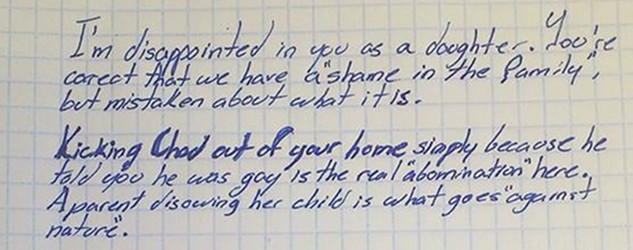 I'm disappointed in you as a daughter. You're
corect that we have a "shame in the family",
but mistaken about what it is.
Kicking Chad out of your home simply because he
told you he was gay is the real "abomination" here.
A parent disowing her child is what goes "against
nature".